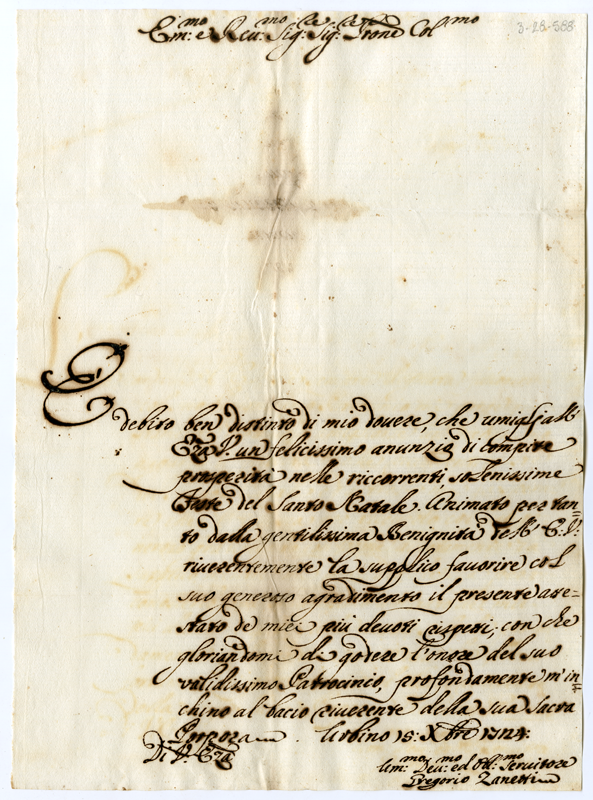 3-28-588
Em:mo e Reu:mo Sig:re Sig:re Prone Col:mo
È debito ben distinto di mio douere, che umigli all'
Eza V. un felicissimo anunzio di compite
prosperità nelle riccorrenti solenissime
Feste del Santo Natale. Animato per tan=
to dalla gentilissima Benignità dell' E. V.
riuerentemente la supplico fauorire col
suo generoso agradimento il presente atte=
stato de miei più deuoti rispetti, con che
gloriandomi di godere l'onore del suo
validissimo Patrocinio, profondamente m'in=
chino al bacio riuerente della sua Sacra
Porpora. Urbino 15: Xbre 1724:
Di V. Eza
Um:mo Deu:mo ed Obb:mo Seruitore
Gregorio Zanetti